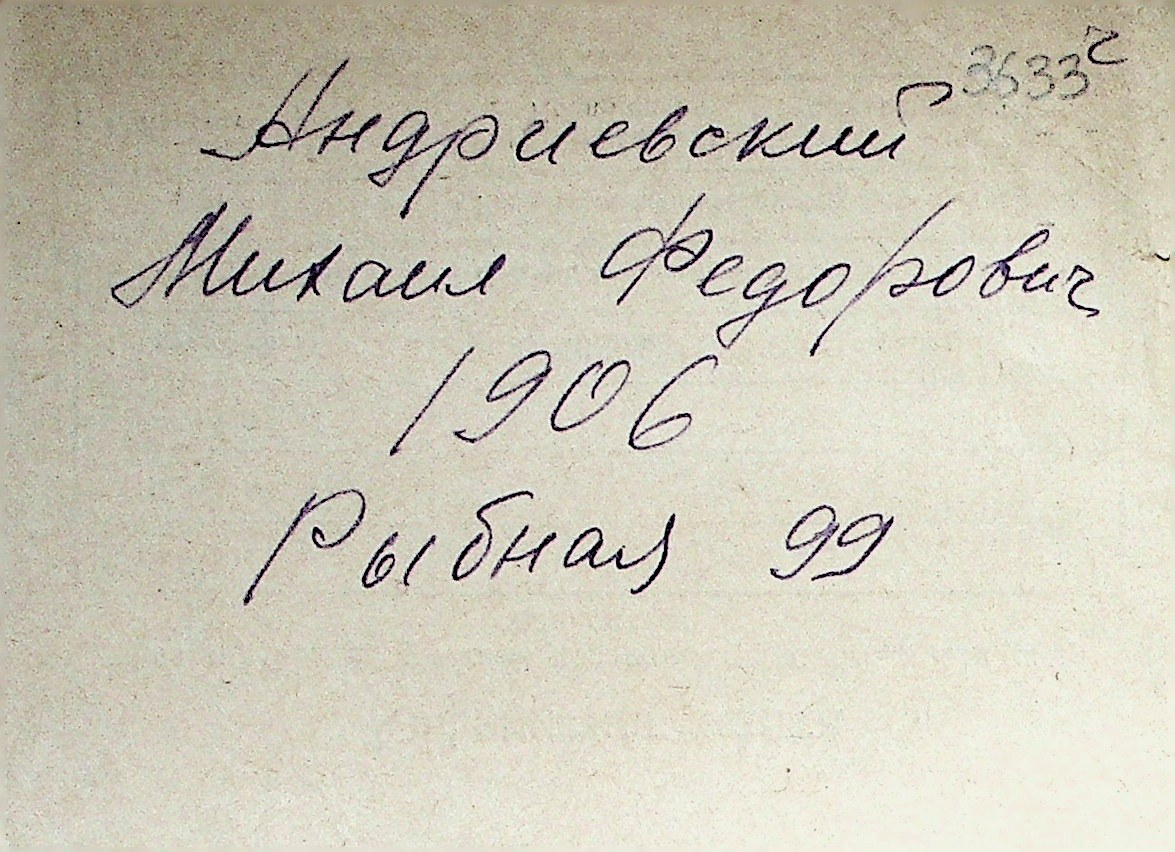 3633ч
Андриевский
Михаил Федорович
1906
Рыбная 99